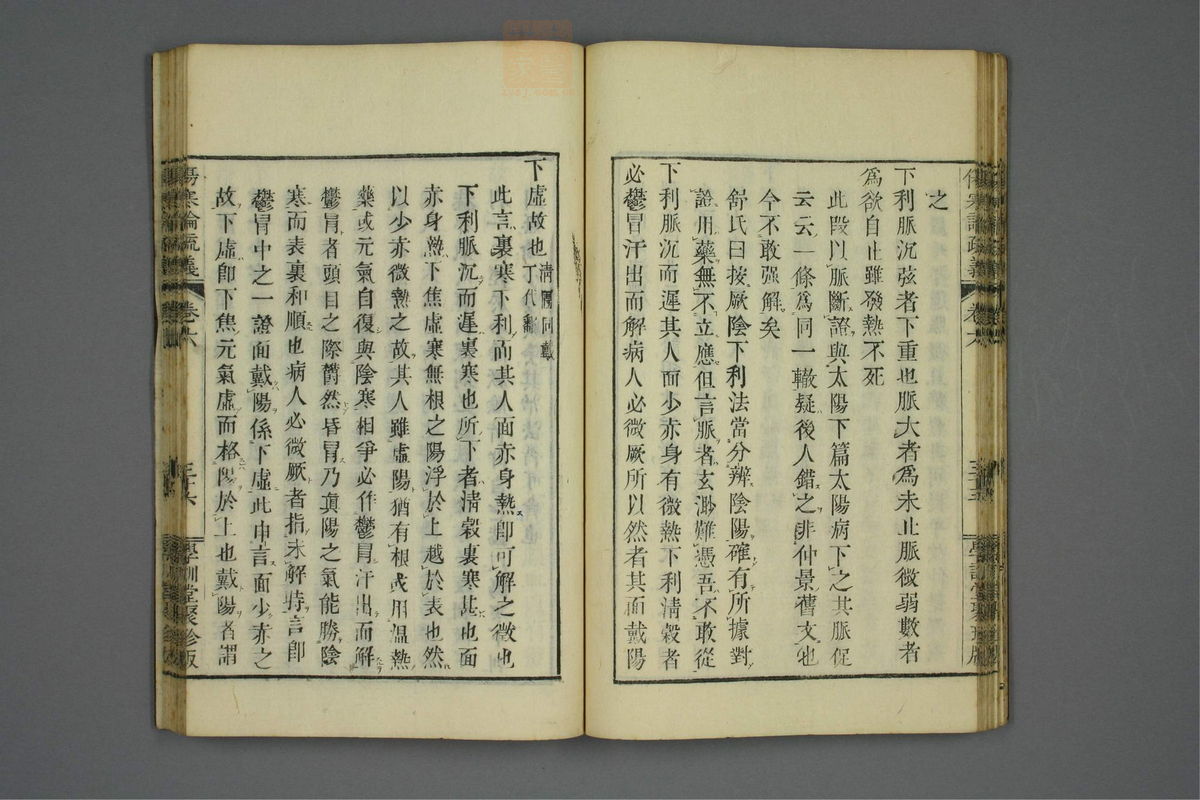 之
下利脈沉弦者下重也脈大者爲未止脈微弱數者
爲欲自止雖發熱不死
此段以脈斷證與太陽下篇太陽病下之其脈促
云云一條爲同一轍疑後人錯之非仲景舊文也
今不敢强解矣
舒氏曰按厥陰下利法當分辨陰陽確有所據對
證用藥無不立應但言脈者玄渺難憑吾不敢從
下利脈沉而遲其人面少赤身有微熱下利淸穀者
必鬱冒汗出而解病人必微厥所以然者其面戴陽
下虛故也
此言裏寒下利而其人面赤身熱卽可解之徵也
下利脈沉而遲裏寒也所下者淸穀裏寒甚也面
亦身熱下焦虛寒無根之陽浮於上越於表也然
以少赤微熱之故其人雖虛陽猶有根或用温熱
藥或元氣自復與陰寒相爭必作鬱冒汗出而解
鬱冒者頭目之際欝然昏冒乃眞陽之氣能勝陰
寒而表裏和順也病人必微厥者指未解時言卽
鬱冒中之一證面戴陽係下虛此申言面少赤之
故下虛卽下焦元氣虛而格陽於上也戴陽者謂
傷寒論疏義
卷六
三十六
學訓堂聚珍版